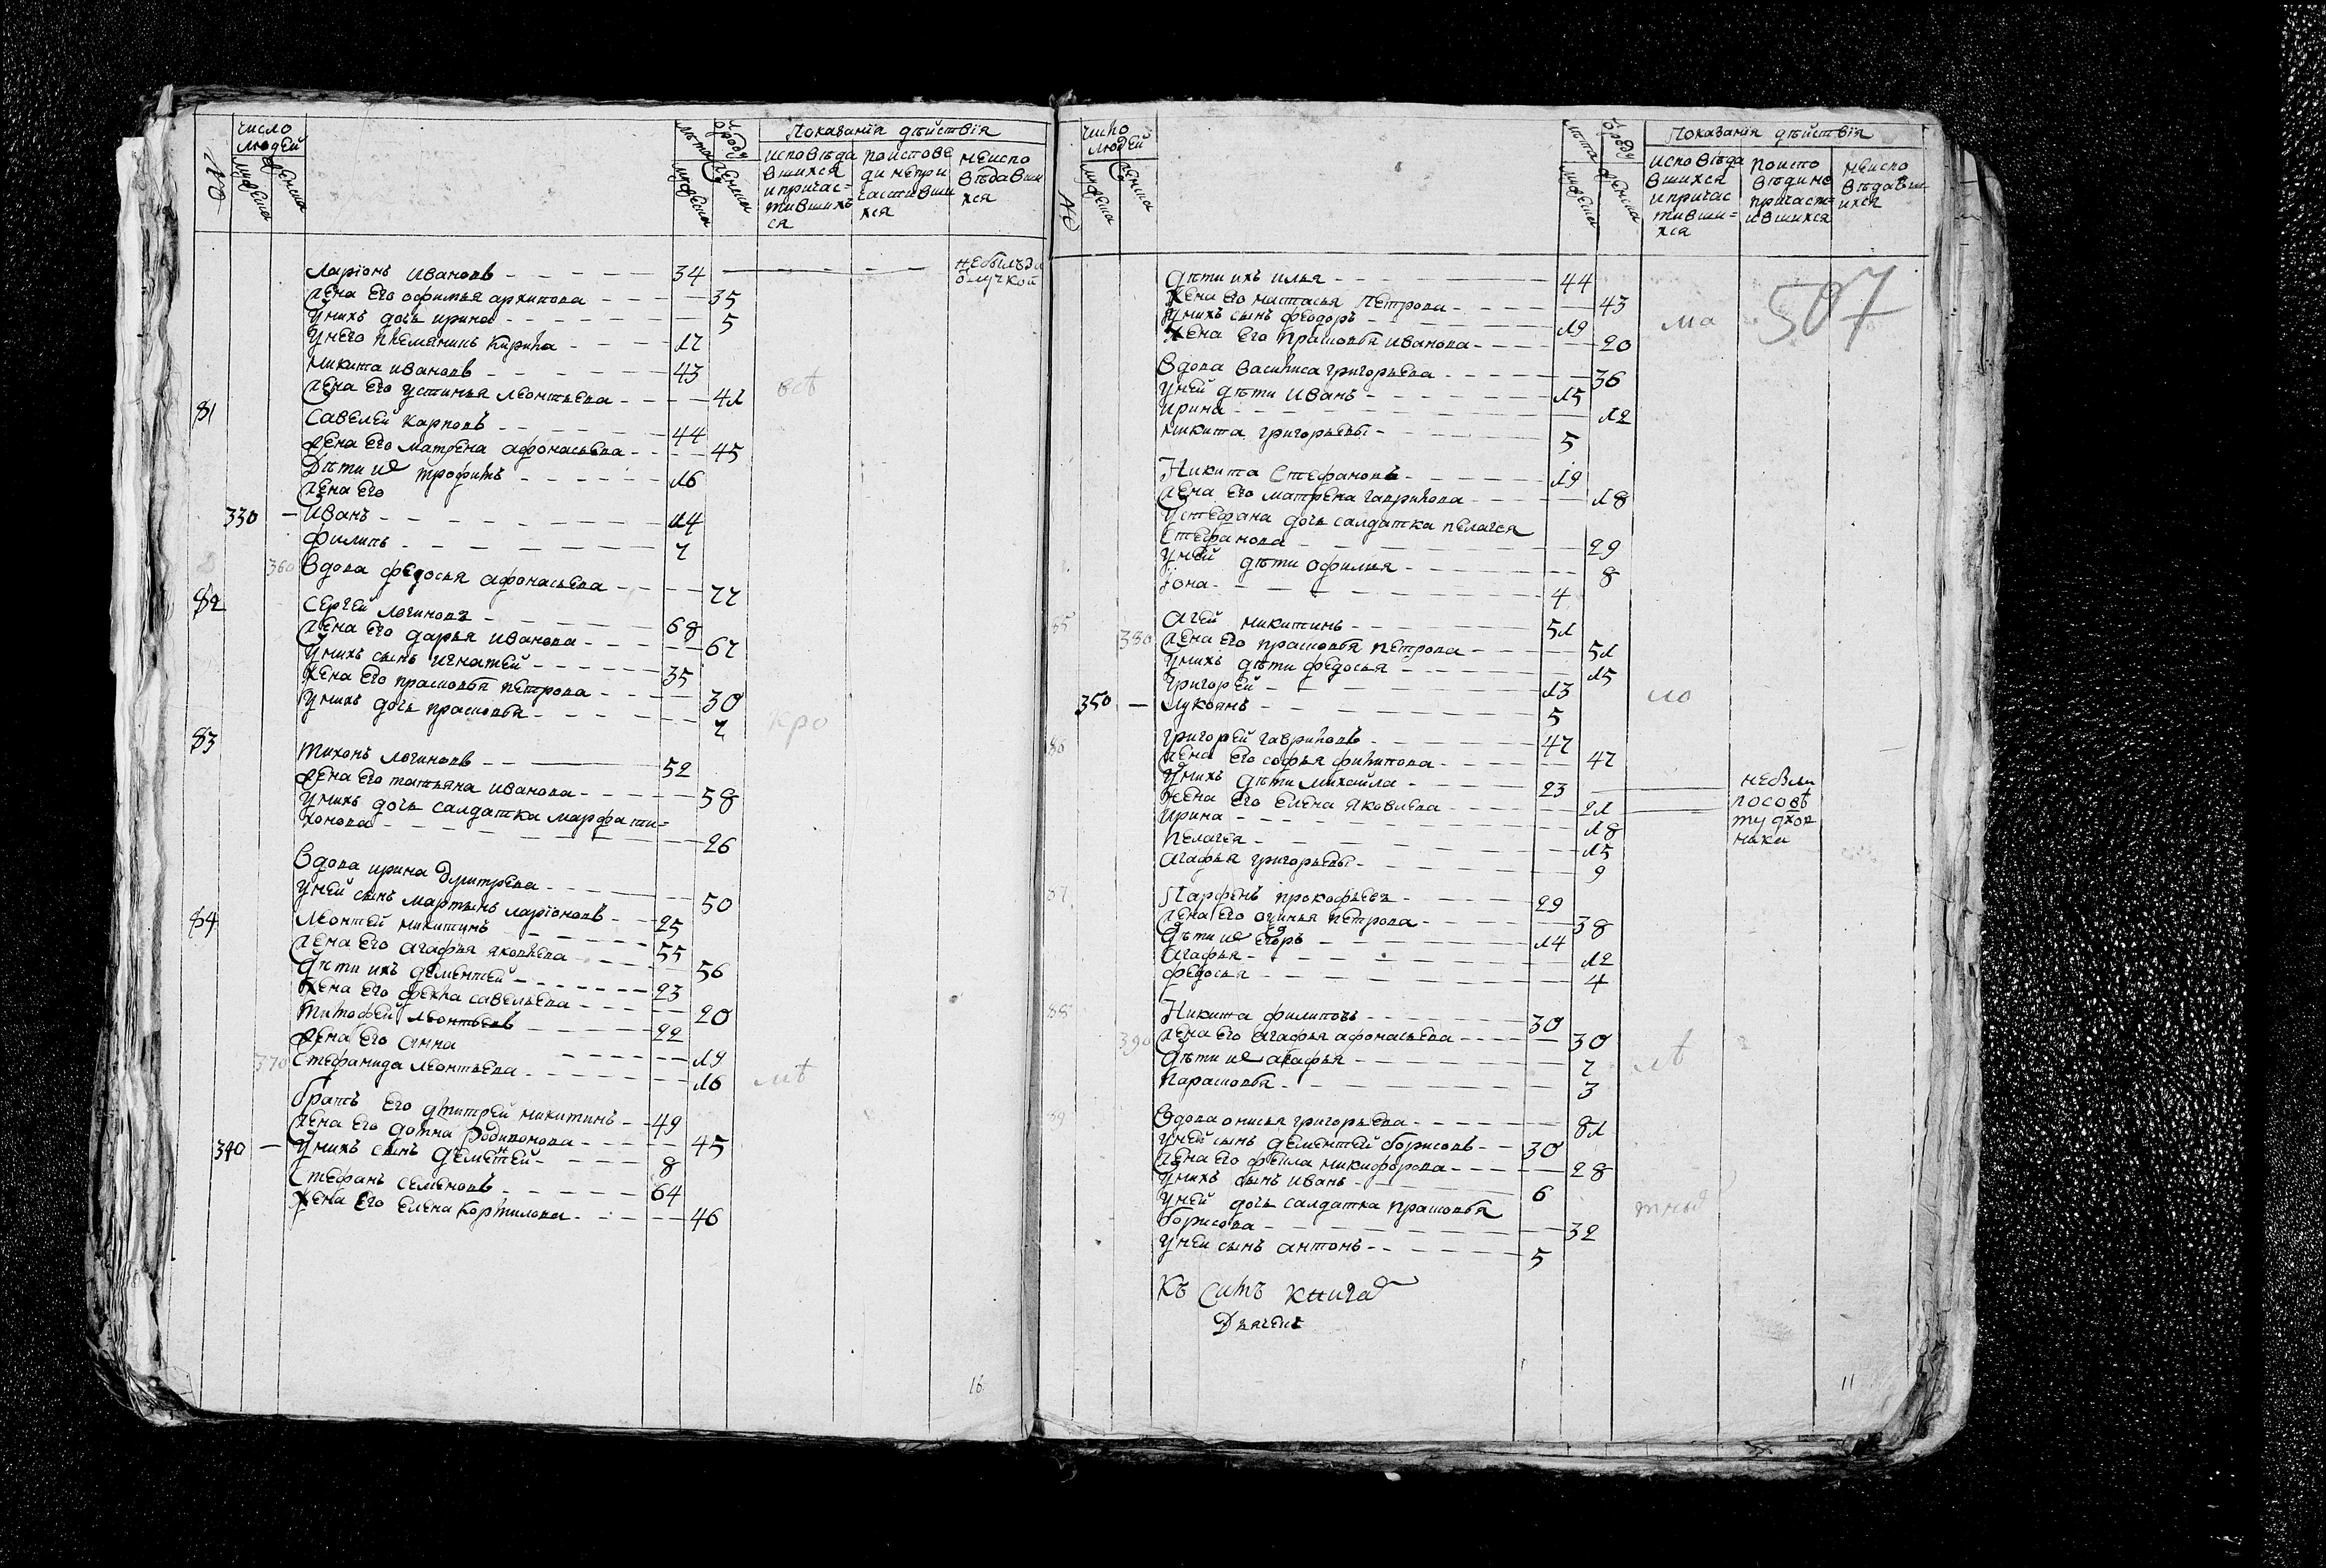 №
число людей
мужеска
женска
лѣта ѿ роду
мужеска
женска
Показанїя дѣйствїя
исповѣдавшихся и причастившихъся
по исповеди не причастившихся
не исповѣдавшихся
Ларїонъ Ивановъ 34 не былъ за ѿлучкой
жена его офимья архипова 35
у нихъ дочь ирина 5
у него племянникъ Кирила 17
микита ивановъ 43 всѣ
жена его устинья леонтьева 41
81 Савелей Карповъ 44
жена его матрена афонасьева 45
Дѣти их трофимъ 16
жена его
330 Иванъ 14
филипъ 7
360 Вдова федосья афонасьева 77
82 Сергей логиновъ 68
жена его дарья иванова 67
у нихъ сынъ игнатей 35
жена его прасковья петрова 30
у нихъ дочь прасковья 7 кро
83 Тихонъ логиновъ 52
жена его татьяна иванова 58
у нихъ дочь салдатка марфа ти=
хонова 26
Вдова ирина дмитрева 50
у ней сынъ мартынъ ларїоновъ 25
84 Леонтей микитинъ 55
жена его агафья яковлева 56
дѣти ихъ дементей 23
жена его фекла савельева 20
Тимофей леонтьевъ 22
жена его анна 19
370 Стефанида леонтьева 16 мѣ
братъ его дмитрей микитинъ 49
жена его домна родивонова 45
340 у нихъ сынъ дементей 8
Стефанъ семеновъ 64
жена его елена кормилова 46
16
№
число людей
мужеска
женска
лѣта ѿ роду
мужеска
женска
Показанїя дѣйствїя
исповѣдавшихся и причастившихся
по исповѣди не причастившихся
не исповѣдавшихся
507
дѣти ихъ илья 44
жена его настасья петрова 43
у нихъ сынъ феодоръ 19 ма
жена его прасковья иванова 20
Вдова василиса григорьева 36
у ней дѣти иванъ 15
ирина 12
микита григорьевы 5
Никита Стефановъ 19
жена его матрена гаврилова 18
у стефана дочь салдатка пелагея
Стефанова 29
у ней дѣти офимья 8
їона 4
85 Агей микитинъ 51
380 жена его прасковья петрова 51
у нихъ дѣти федосья 15
григорей 13
350 Лукоянъ 5 ло
86 григорей гавриловъ 47
жена его софья филипова 47
у нихъ дѣти михайла 23 не были
жена его елена яковлева 21 по совѣ
ирина 18 ту
пелагея 15 ники
агафья григорьевы 9
87 Парфенъ прокофьевъ 29
жена его петрова 38
дѣти их егоръ 14
агафья 12
федосья 4
88 Никита филиповъ 30
390 жена его агафья афонасьева 30
дѣти их агафья 7 лѣ
парасковья 3
89 Вдова онисья григорьева 81
у ней сынъ дементей борисовъ 30
жена его фекла микифорова 28
у нихъ сынъ иванъ 6
у ней дочь салдатка прасковья
борисова 32 тныя
у ней сынъ антонъ 5
Къ симъ книга
Дьячекъ
11